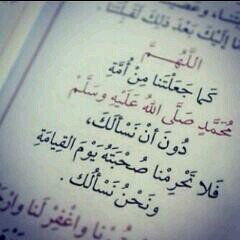 إِلَيْكَ بَعْدَ ذَلِكَ
اللَّهُمَّ
كَمَا جَعَلْتَنَا مِنْ أُمَّةِ
مُحَمَّدٍ صَلَّى اللهُ عَلَيْهِ وَسَلَّمْ
دُونَ أَنْ نَسْأَلَكَ،
فَلَا تَحْرِمْنَا صُحْبَتَهُ يَوْمَ القِيَامَةِ
وَنَحْنُ نَسْأَلُكَ .
وَاغْفِرْ لَنَا